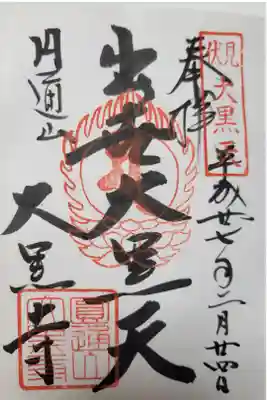 奉拝
平成廿七年二月廿四日
出世大黒天
円通山
大黒寺
圓通山
大黒寺